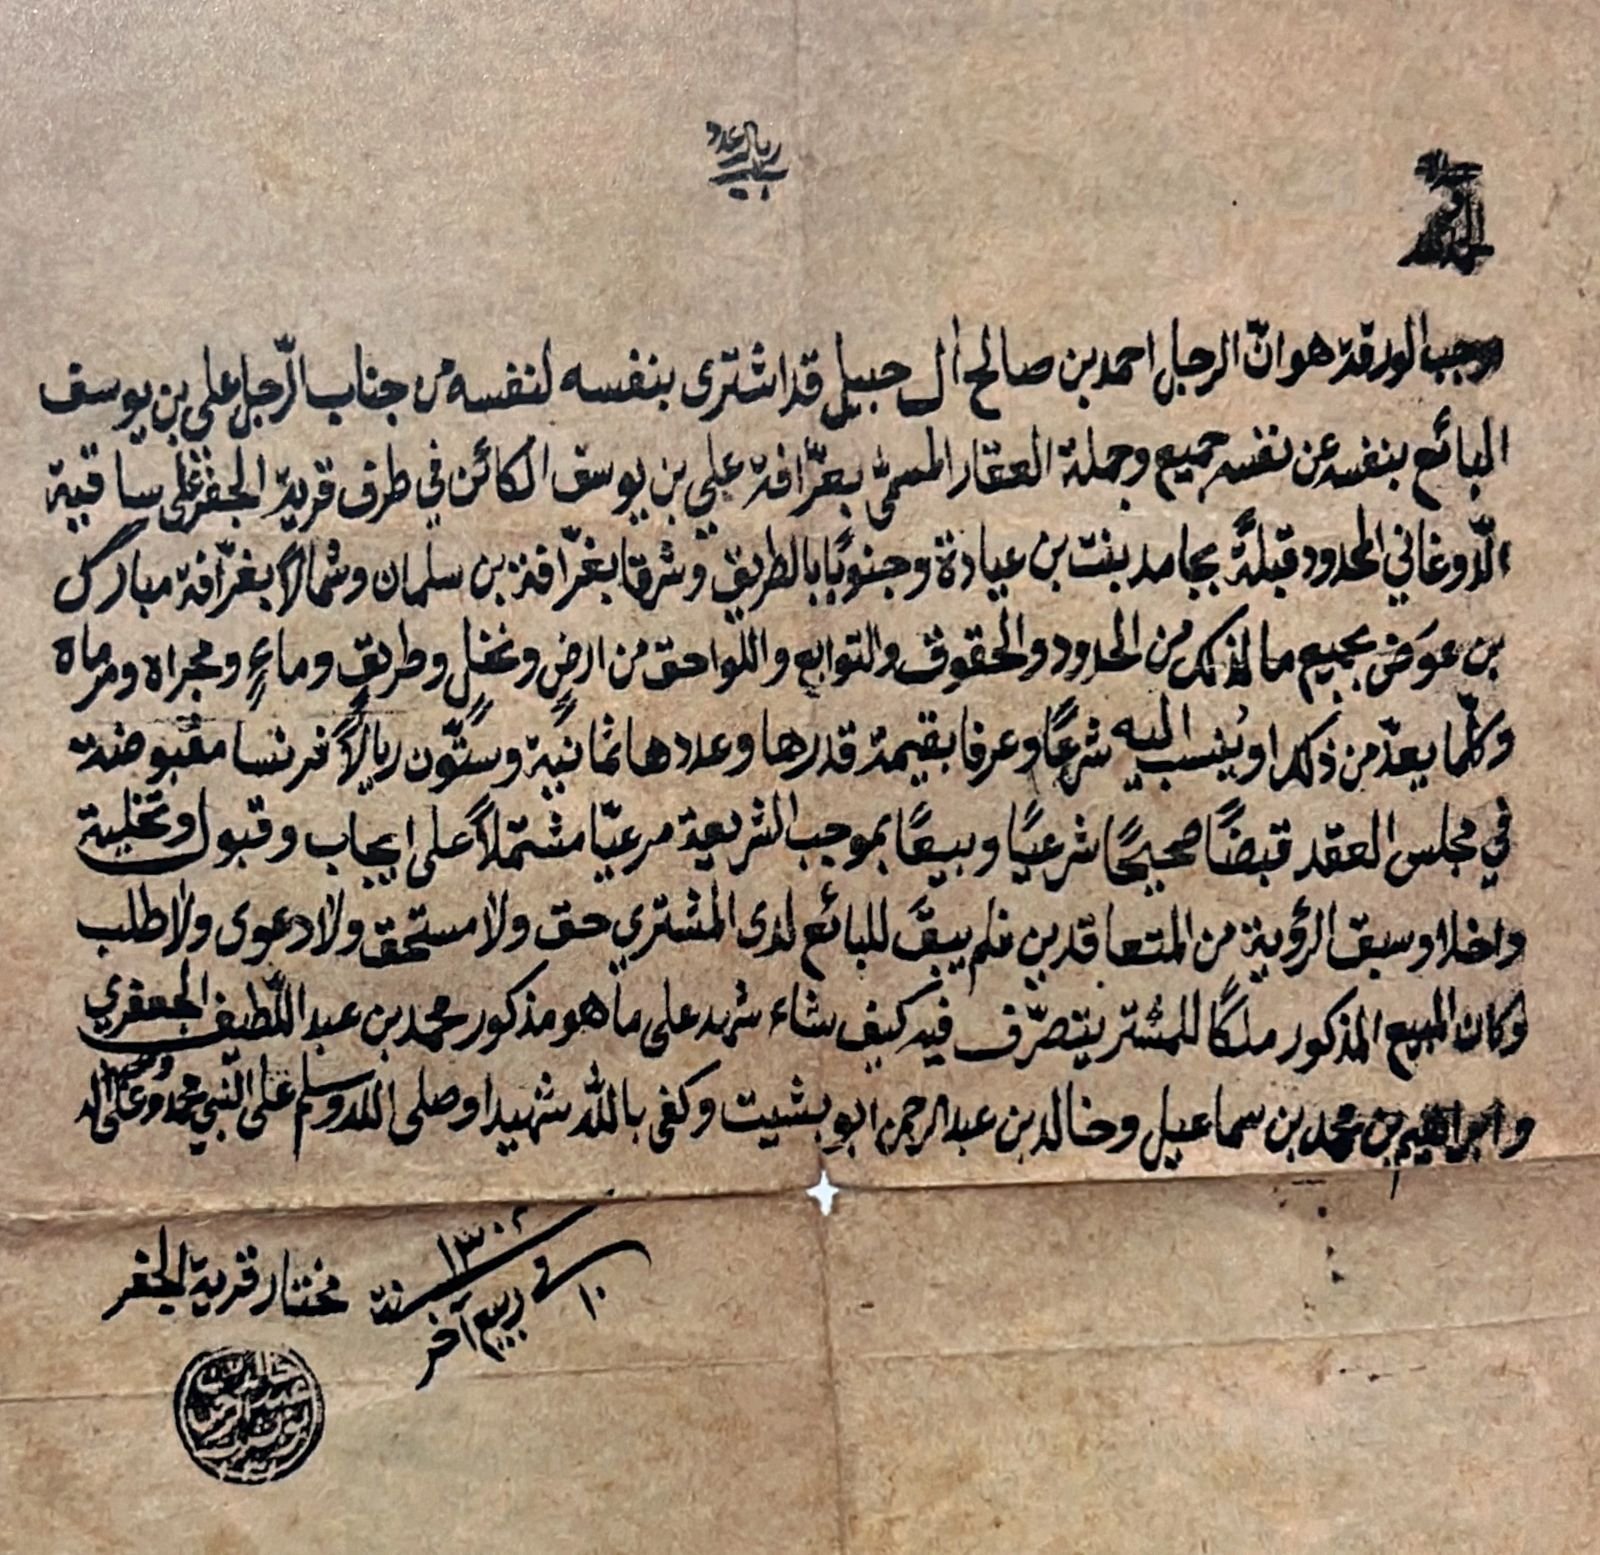 ريال عدد
موجب الورقة هو انّ الرجل احمد بن صالح ال حبيل قد اشترى بنفسه لنفسه من جناب الرّجل علي بن يوسف
البائع بنفسه عن نفسه جميع وجملة العقار المسمّى بغرّافة علي بن يوسف الكائن في طرف قرية الجفر على ساقية
الدّوغاني المحدود قبلةً بجامد بنت بن عيادة وجنوبًا بالطريق وشرقا بغرّافة بن سلمان وشمالاً بغرّافة مبارك
بن عوَض بجميع ما لذلك من الحدود والحقوق والتوابع واللواحق من ارضٍ ونخلٍ وطريقٍ وماءٍ ومجراه ومرماه
وكلّما يعدّ من ذلك او يُنسب اليه شرعًا وعرفا بقيمة قدرها وعددها ثمانيةً وستّون ريالاً فرنسا مقبوضة
في مجلس العقد قبضًا صحيحًا شرعيًا وبيعًا بموجب الشريعة مرعيّا مشتملاً على ايجاب وقبول وتخلية
واخلاء وسبق الرؤية من المتعاقدين فلم يبقَ للبائع لدى المشتري حق ولا مستحق ولا دعوى ولا طلب
وكان المبيع المذكور ملكًا للمشتر يتصرّف فيه كيف شاء شهد على ما هو مذكور محمد بن عبد اللّطيف الجعفري
وابراهيم بن محمد بن سماعيل وخالد بن عبد الرحمن ابو بشيت وكفى بالله شهيدا وصلى الله وسلم على النّبي محمد وعلى اله وصحبه
١٠ في ربيع آخر سنة ١٣٠٢
مختار قرية الجفر